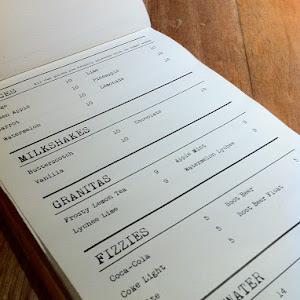 10 Lime 10
en Apple 10 Pineapple 10
arrot 10 Lemonade 10
Watermelon 10
MILKSHAKES
Butterscotch 10 Chocolate 10
Vanilla 10
GRANITAS
Frosty Lemon Tea 9 Apple Mint 9
Lychee Lime 9 Watermelon Lychee 9
FIZZIES
Coca-Cola 5 Root Beer 5
Coke Light 5 Root Beer Float
ite
WATER
14